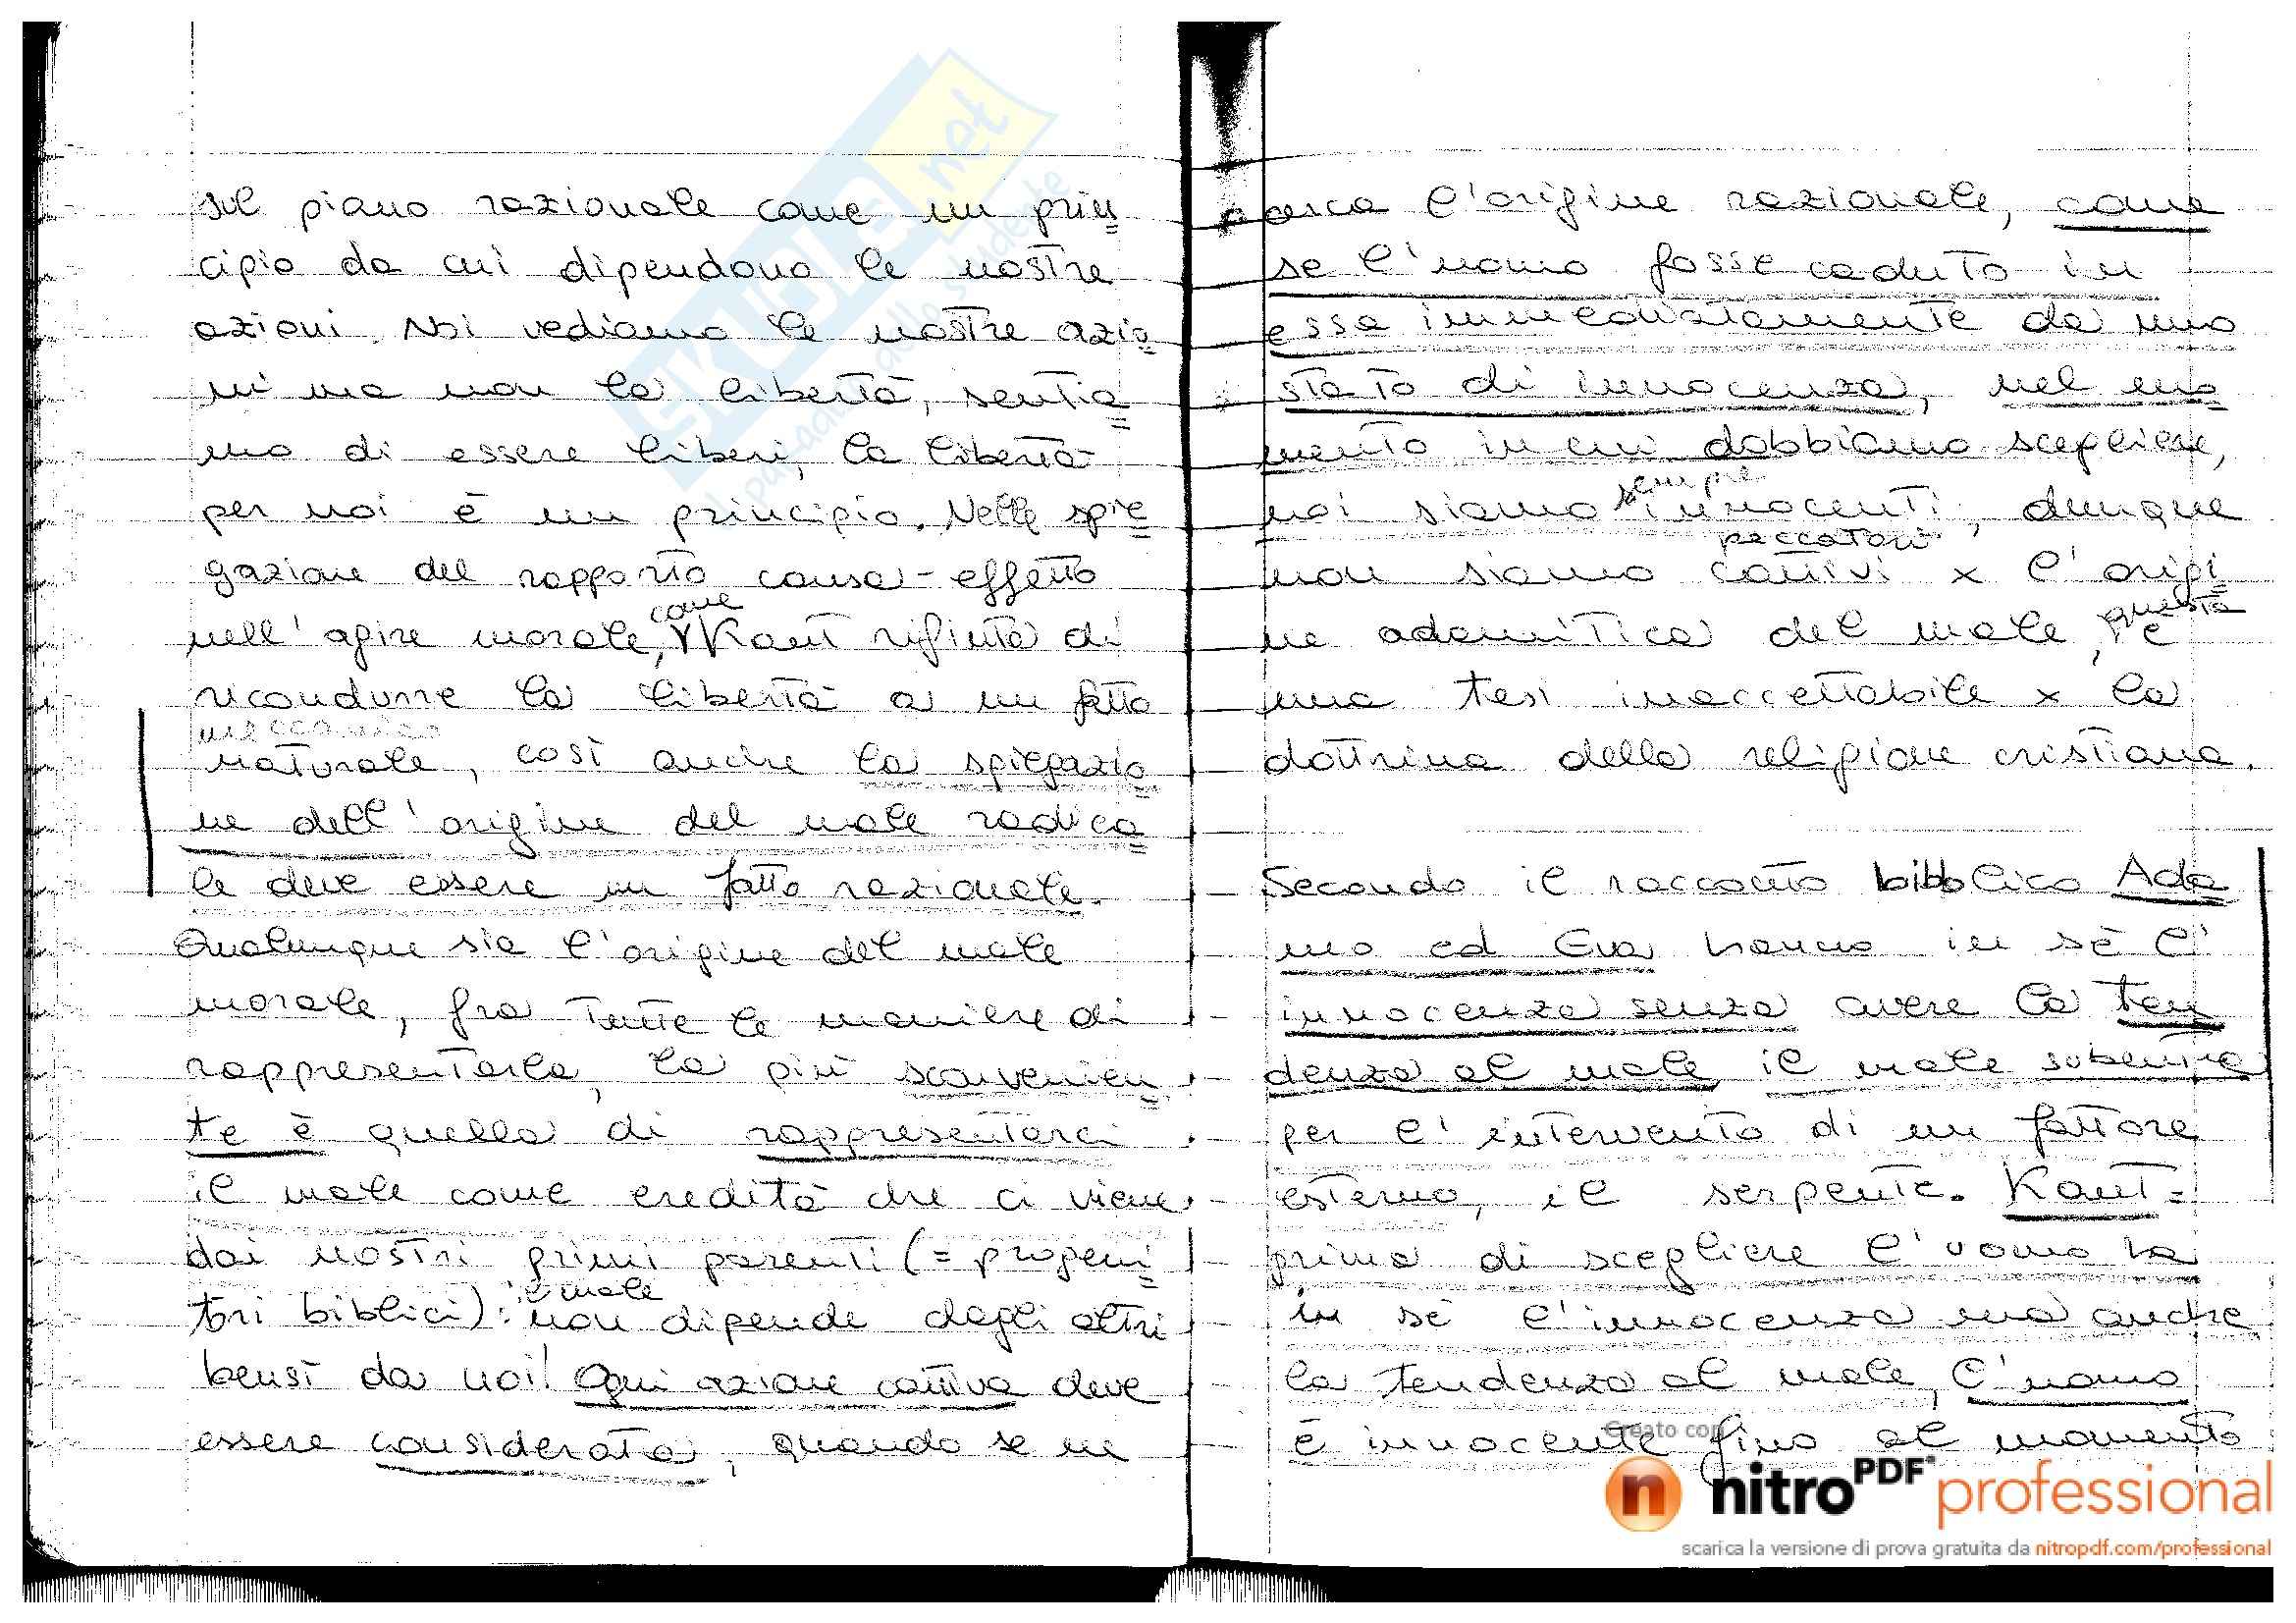 sul piano razionale come un prin
cipio da cui dipendono le nostre
azioni. Noi vediamo le nostre azio
ni ma non la libertà, sentia
mo di essere liberi, la libertà
per noi è un principio. Nelle spie
gazione del rapporto causa-effetto
come
nell'agire morale, Kant rifiuta di
ricondurre la libertà a un fatto
meccanico
naturale, così anche la spiegazio
ne dell'origine del male radica
le deve essere un fatto razionale.
Qualunque sia l'origine del male
morale, fra tutte le maniere di
rappresentarla, la più sconvenien
te è quella di rappresentarci
il male come eredità che ci viene
dai nostri primi parenti (= progeni
il male
tori biblici): non dipende dagli altri
bensì da noi! Ogni azione cattiva deve
essere considerata, quando se ne
cerca l'origine razionale, come
se l'uomo fosse caduto in
essa immediatamente da uno
stato di innocenza, nel mo
mento in cui dobbiamo scegliere,
sempre
noi siamo innocenti, dunque
peccatori
non siamo cattivi x l'origi
questa
ne adamitica del male, è
una tesi inaccettabile x la
dottrina della religione cristiana.
Secondo il racconto bibblico Ada
mo ed Eva hanno in sè l'
innocenza senza avere la ten
denza al male, il male subentra
per l'intervento di un fattore
esterno, il serpente. Kant =
prima di scegliere l'uomo ha
in sé l'innocenza ma anche
la tendenza al male, l'uomo
è innocente fino al momento
SKUOLA.net
Creato con
nitro PDF professional
scarica la versione di prova gratuita da nitropdf.com/professional